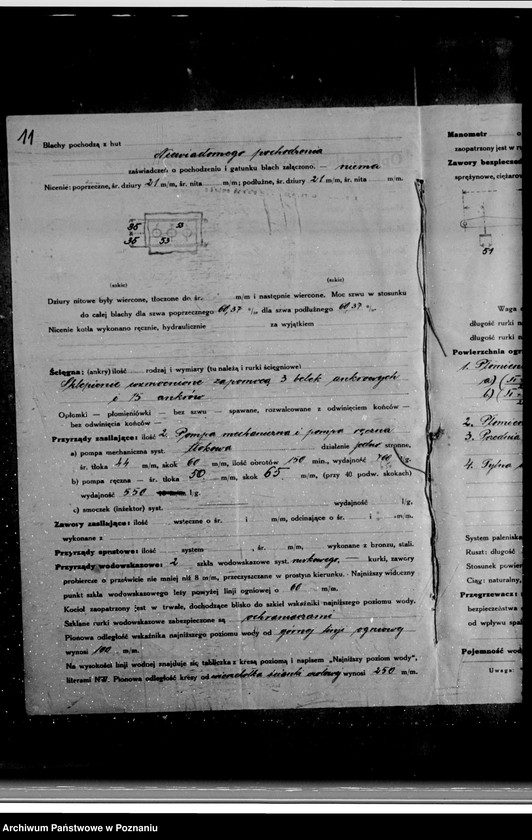 11
Blachy pochodzą z hut
Niewiadomego pochodzenia
zaświadczeń o pochodzeniu i gatunku blach załączono. — niema
Nicenie: poprzeczne, śr. dziury 21 m/m, śr. nita m/m; podłużne, śr. dziury 21 m/m, śr. nita m/m.
35
53
35
53
(szkic) (szkic)
Dziury nitowe były wiercone, tłoczone do śr. m/m i następnie wiercone. Moc szwu w stosunku
do całej blachy dla szwa poprzecznego 60,37 % dla szwa podłużnego 60,37 %
Nicenie kotła wykonano ręcznie, hydraulicznie za wyjątkiem
Ściągna: (ankry) ilość rodzaj i wymiary (tu należą i rurki ściągniowe)
Sklepienie wzmocnione zapomocą 3 belek ankrowych
i 15 ankrów
Opłomki — płomieniówki — bez szwu — spawane, rozwalcowane z odwinięciem końców —
bez odwinięcia końców —
Przyrządy zasilające: ilość 2. Pompa mechaniczna i pompa ręczna
a) pompa mechaniczna syst. działanie jedno stronne,
śr. tłoka 44 m/m, skok 60 m/m, ilość obrotów 150 min., wydajność l/g.
b) pompa ręczna — śr. tłoka 50 m/m, skok 65 m/m, (przy 40 podw. skokach)
wydajność 550 l/g.
c) smoczek (inżektor) syst. wydajność l/g.
Zawory zasilające: ilość wsteczne o śr. i m/m, odcinające o śr. i m/m.
wykonane z
Przyrządy spustowe: ilość system , śr. m/m, wykonane z bronzu, stali.
Przyrządy wodowskazowe: 2 szkła wodowskazowe syst. rurkowego, kurki, zawory
probiercze o prześwicie nie mniej niż 8 m/m, przeczyszczane w prostym kierunku. Najniższy widoczny
punkt szkła wodowskazowego leży powyżej linji ogniowej o 60 m/m.
Kocioł zaopatrzony jest w trwałe, dochodzące blisko do szkieł wskaźniki najniższego poziomu wody.
Szklane rurki wodowskazowe zabezpieczone są ochraniaczami
Pionowa odległość wskaźnika najniższego poziomu wody od górnej linji ogniowej
wynosi 100 m/m.
Na wysokości linji wodnej znajduje się tabliczka z kresą poziomą i napisem „Najniższy poziom wody",
literami NW. Pionowa odległość kresy od wierzchołka ścianki sitowej wynosi 250 m/m.
Manometr
zaopatrzony jest w
Zawory bezpieczeń
sprężynowe, ciężarow
51
Waga
długość rurki
długość rurki
Powierzchnia ogr
1. Płomien
a)
b)
2. Płomie
3. Przednia
4. Tylna
System paleniska
Ruszt: długość
Stosunek powier
Ciąg: naturalny,
Przegrzewacz:
bezpieczeństwa
od wpływu spali
Pojemność wod
Uwaga:
Archiwum Państwowe w Poznaniu